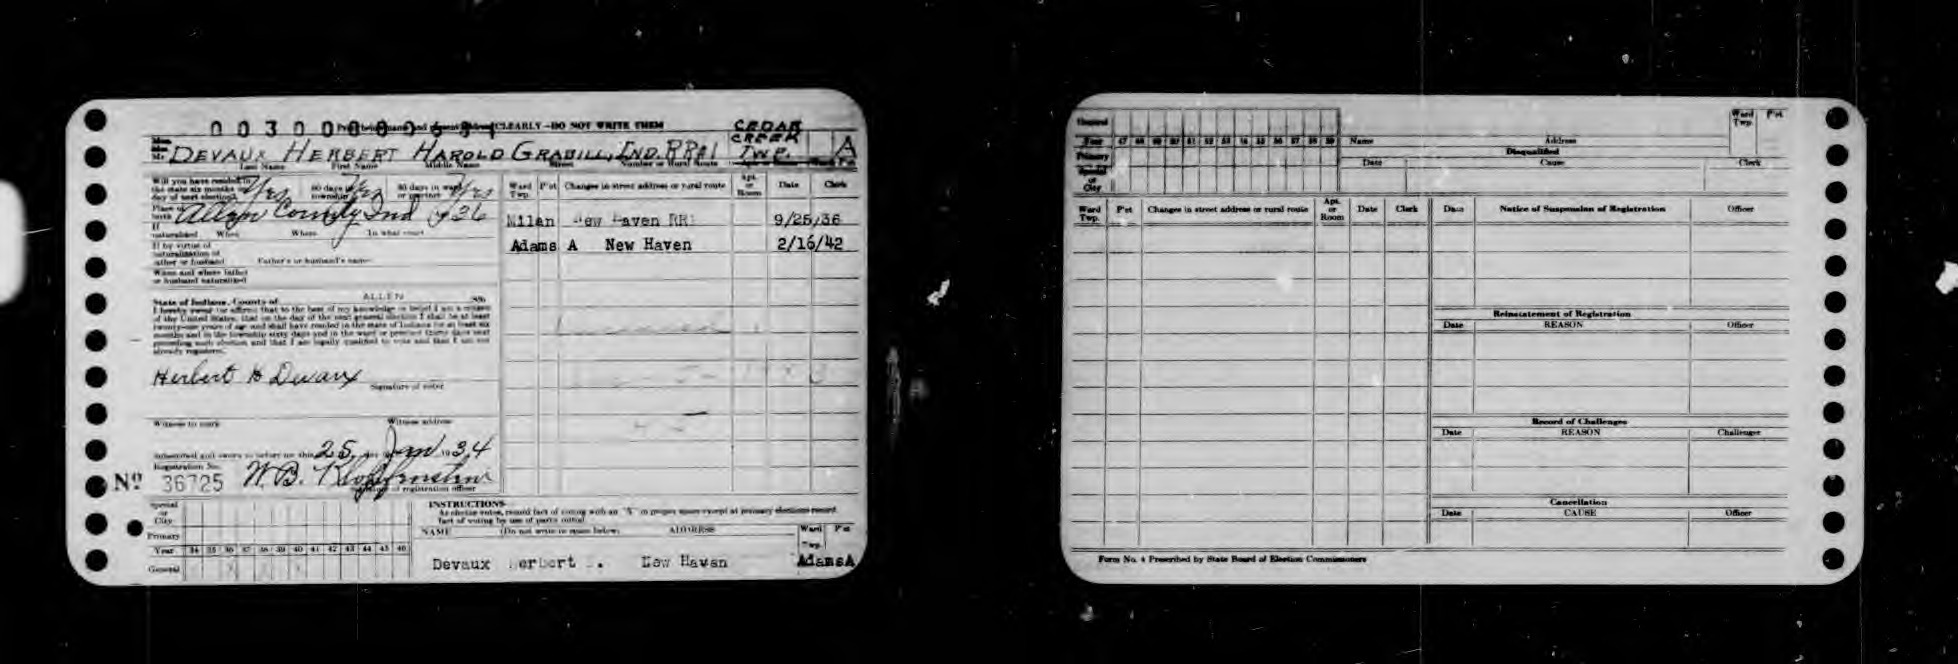 CLEARLY—DO NOT WRITE THEM
CEDAR
CREEK
TWP. A
Mr. DEVAUX HERBERT HAROLD GRABILL, IND. RR#1
Last Name First Name Middle Name Street Number or Rural Route
Will you have resided in
the state six months on Yrs 60 days in township Yrs 30 days in ward or precinct Yrs
day of next election?
Place of birth Allen County Ind
If naturalized When Where In what court
If by virtue of
naturalization of
father or husband Father's or husband's name
When and where father
or husband naturalized
State of Indiana, County of ALLEN SS:
I hereby swear (or affirm) that to the best of my knowledge or belief I am a citizen
of the United States, that on the day of the next general election I shall be at least
twenty-one years of age and shall have resided in the state of Indiana for at least six
months and in the township sixty days and in the ward or precinct thirty days next
preceding such election and that I am legally qualified to vote and that I am not
already registered.
Herbert H Devaux
Signature of voter
Witness to mark Witness address
Subscribed and sworn to before me this 25 day of Jan 1934
Registration No.
No 36725 W. B.
Signature of registration officer
Ward Twp. P'ct Changes in street address or rural route Apt. or Room Date Clerk
Milan New Haven RR1 9/25/36
Adams A New Haven 2/16/42
Special
or
City
Primary
Year 34 35 36 37 38 39 40 41 42 43 44 45 46
General
INSTRUCTIONS
As elector votes, record fact of voting with an "X" in proper space except at primary elections record
fact of voting by use of party initial.
NAME (Do not write in space below) ADDRESS Ward Twp. P'ct
Devaux Herbert New Haven Adams A
General
Year 47 48 49 50 51 52 53 54 55 56 57 58 59
Primary
Special
or
City
Name Address Ward Twp. P'ct
Disqualified
Date Cause Clerk
Ward Twp. P'ct Changes in street address or rural route Apt. or Room Date Clerk
Date Notice of Suspension of Registration Officer
Reinstatement of Registration
Date REASON Officer
Record of Challenges
Date REASON Challenger
Cancellation
Date CAUSE Officer
Form No. 4 Prescribed by State Board of Election Commissioners